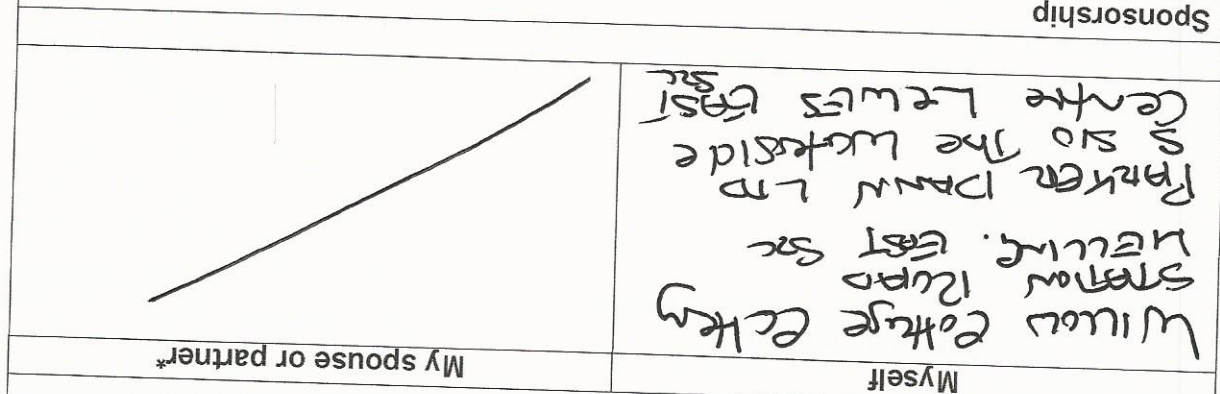 Myself
My spouse or partner*
WILLOW Cottage
STATION ROAD
EAST SSx
PARKER DANN LTD
S 10 The Waterside
Centre LEWES EAST
SSx
Sponsorship